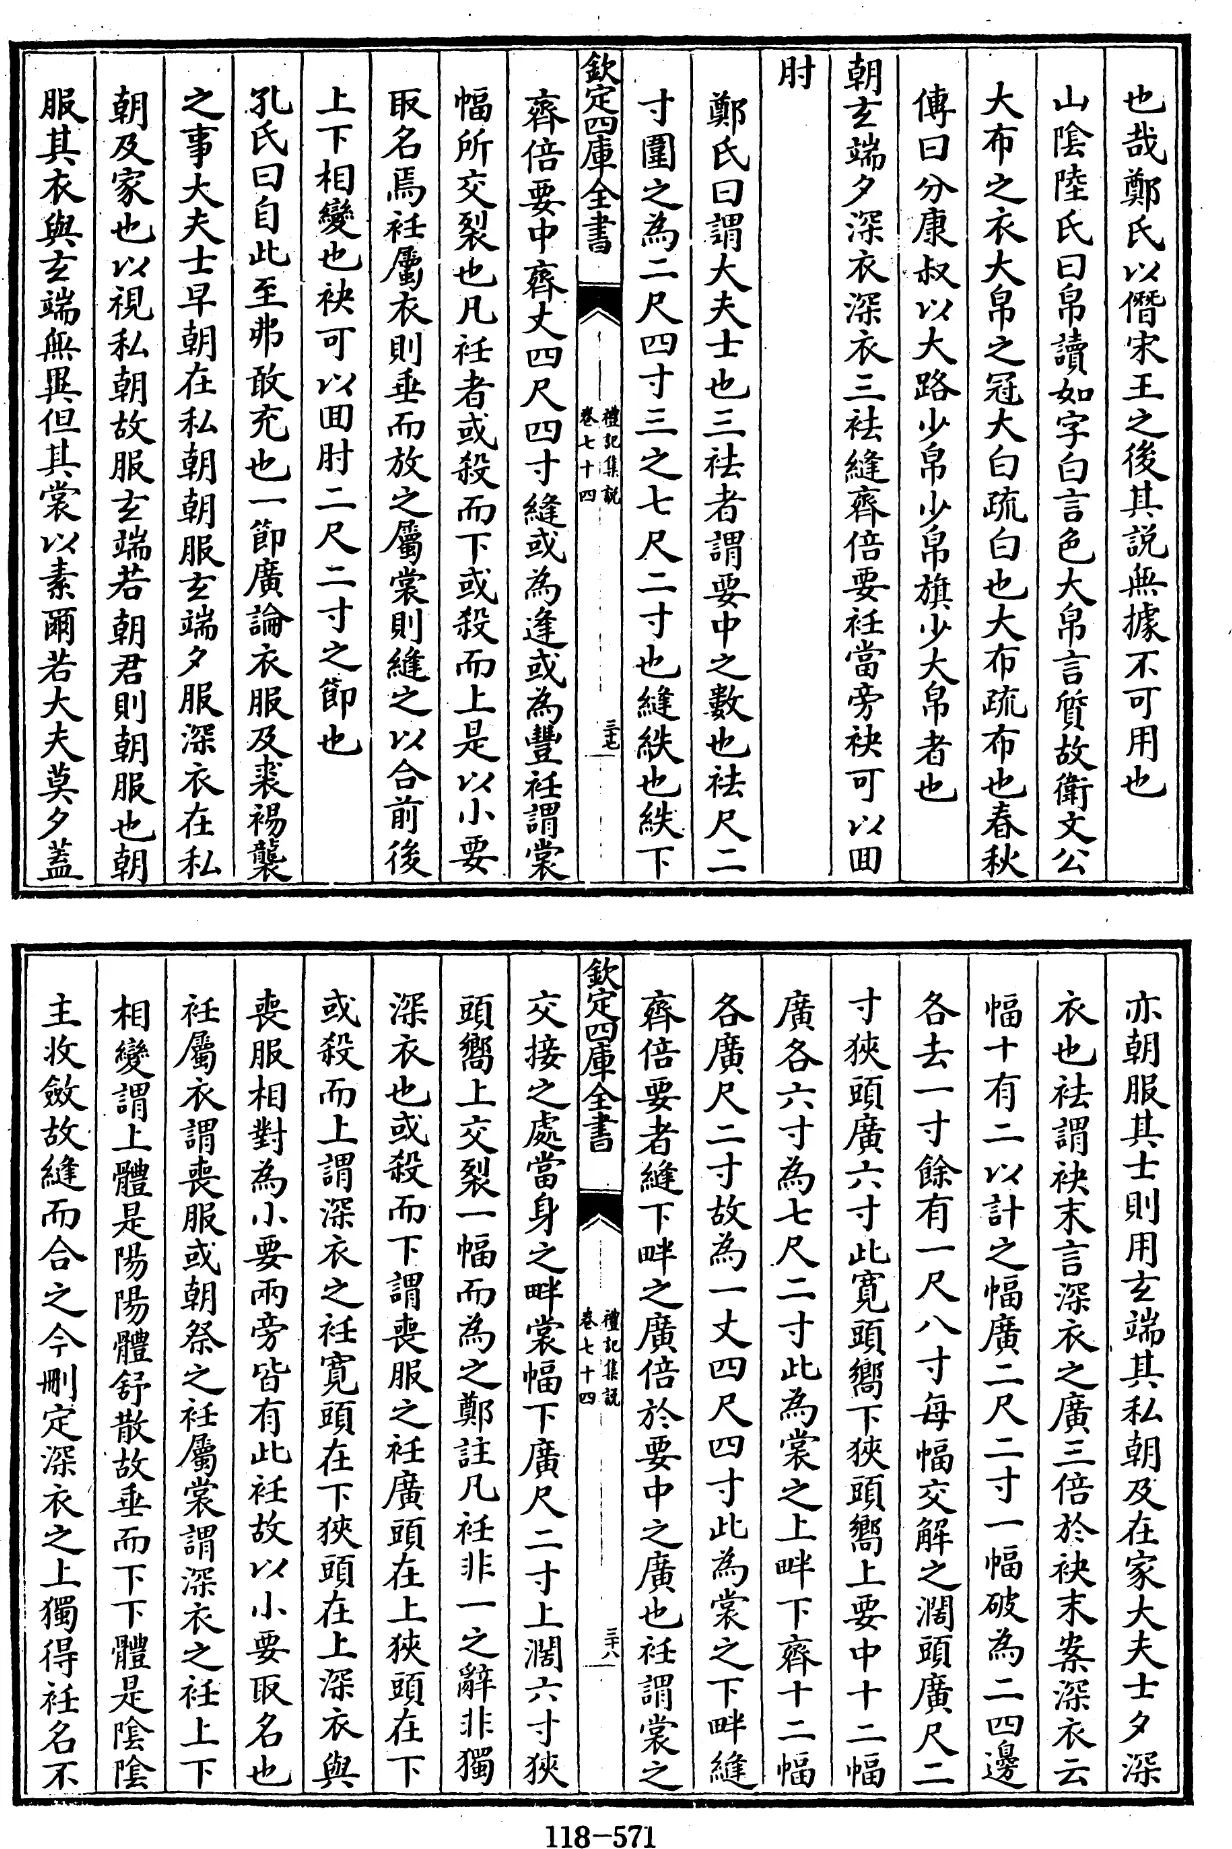 也哉鄭氏以僭宋王之後其説無據不可用也
山陰陸氏曰帛讀如字白言色大帛言質故衛文公
大布之衣大帛之冠大白疏白也大布疏布也春秋
傳曰分康叔以大路少帛少帛旗少大帛者也
朝玄端夕深衣深衣三袪縫齊倍要衽當旁袂可以回
肘
鄭氏曰謂大夫士也三袪者謂要中之數也袪尺二
寸圍之為二尺四寸三之七尺二寸也縫紩也紩下
欽定四庫全書
禮記集説
卷七十四
三七
齊倍要中齊丈四尺四寸縫或為逢或為豐衽謂裳
幅所交裂也凡衽者或殺而下或殺而上是以小要
取名焉衽屬衣則垂而放之屬裳則縫之以合前後
上下相變也袂可以回肘二尺二寸之節也
孔氏曰自此至弗敢充也一節廣論衣服及裘裼襲
之事大夫士早朝在私朝朝服玄端夕服深衣在私
朝及家也以視私朝故服玄端若朝君則朝服也朝
服其衣與玄端無異但其裳以素爾若大夫莫夕蓋
亦朝服其士則用玄端其私朝及在家大夫士夕深
衣也袪謂袂末言深衣之廣三倍於袂末案深衣云
幅十有二以計之幅廣二尺二寸一幅破為二四邊
各去一寸餘有一尺八寸每幅交解之濶頭廣尺二
寸狹頭廣六寸此寛頭嚮下狹頭嚮上要中十二幅
廣各六寸為七尺二寸此為裳之上畔下齊十二幅
各廣尺二寸故為一丈四尺四寸此為裳之下畔縫
齊倍要者縫下畔之廣倍於要中之廣也衽謂裳之
欽定四庫全書
禮記集説
卷七十四
三八
交接之處當身之畔裳幅下廣尺二寸上濶六寸狹
頭嚮上交裂一幅而為之鄭註凡衽非一之辭非獨
深衣也或殺而下謂喪服之衽廣頭在上狹頭在下
或殺而上謂深衣之衽寛頭在下狹頭在上深衣與
喪服相對為小要兩旁皆有此衽故以小要取名也
衽屬衣謂喪服或朝祭之衽屬裳謂深衣之衽上下
相變謂上體是陽陽體舒散故垂而下下體是陰陰
主收斂故縫而合之今刪定深衣之上獨得衽名不
118-571